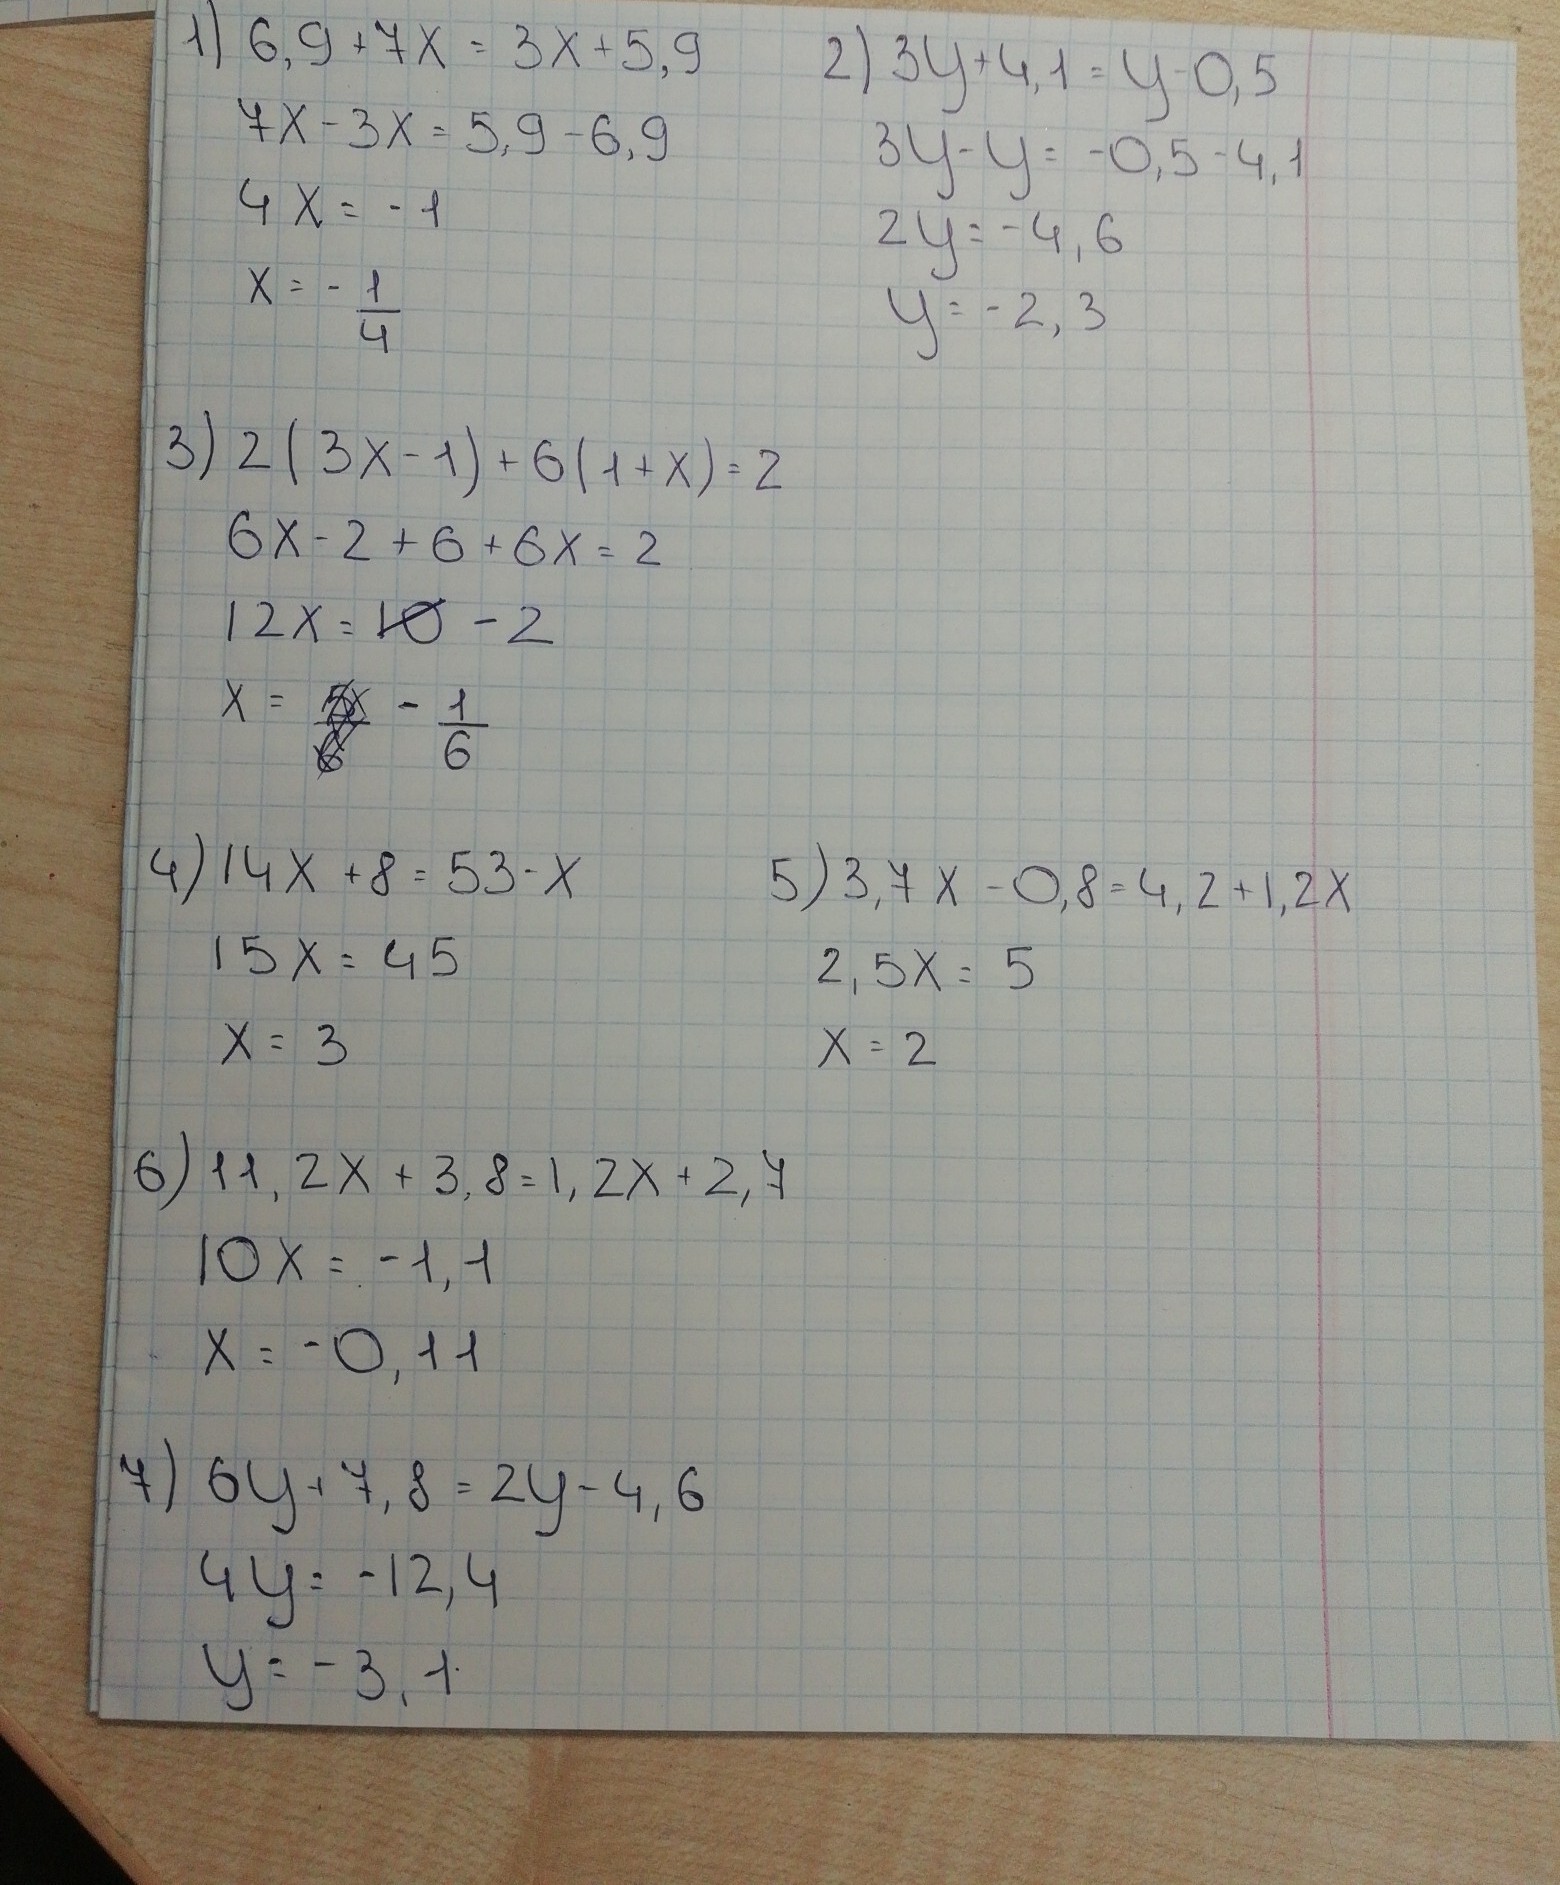 1) 6,9+7x=3x+5,9
7x-3x=5,9-6,9
4x=-1
x=-1/4
2) 3y+4,1=y-0,5
3y-y=-0,5-4,1
2y=-4,6
y=-2,3
3) 2(3x-1)+6(1+x)=2
6x-2+6+6x=2
12x=10 -2
x= -1/6
4) 14x+8=53-x
15x=45
x=3
5) 3,7x-0,8=4,2+1,2x
2,5x=5
x=2
6) 11,2x+3,8=1,2x+2,7
10x=-1,1
x=-0,11
7) 6y+7,8=2y-4,6
4y=-12,4
y=-3,1